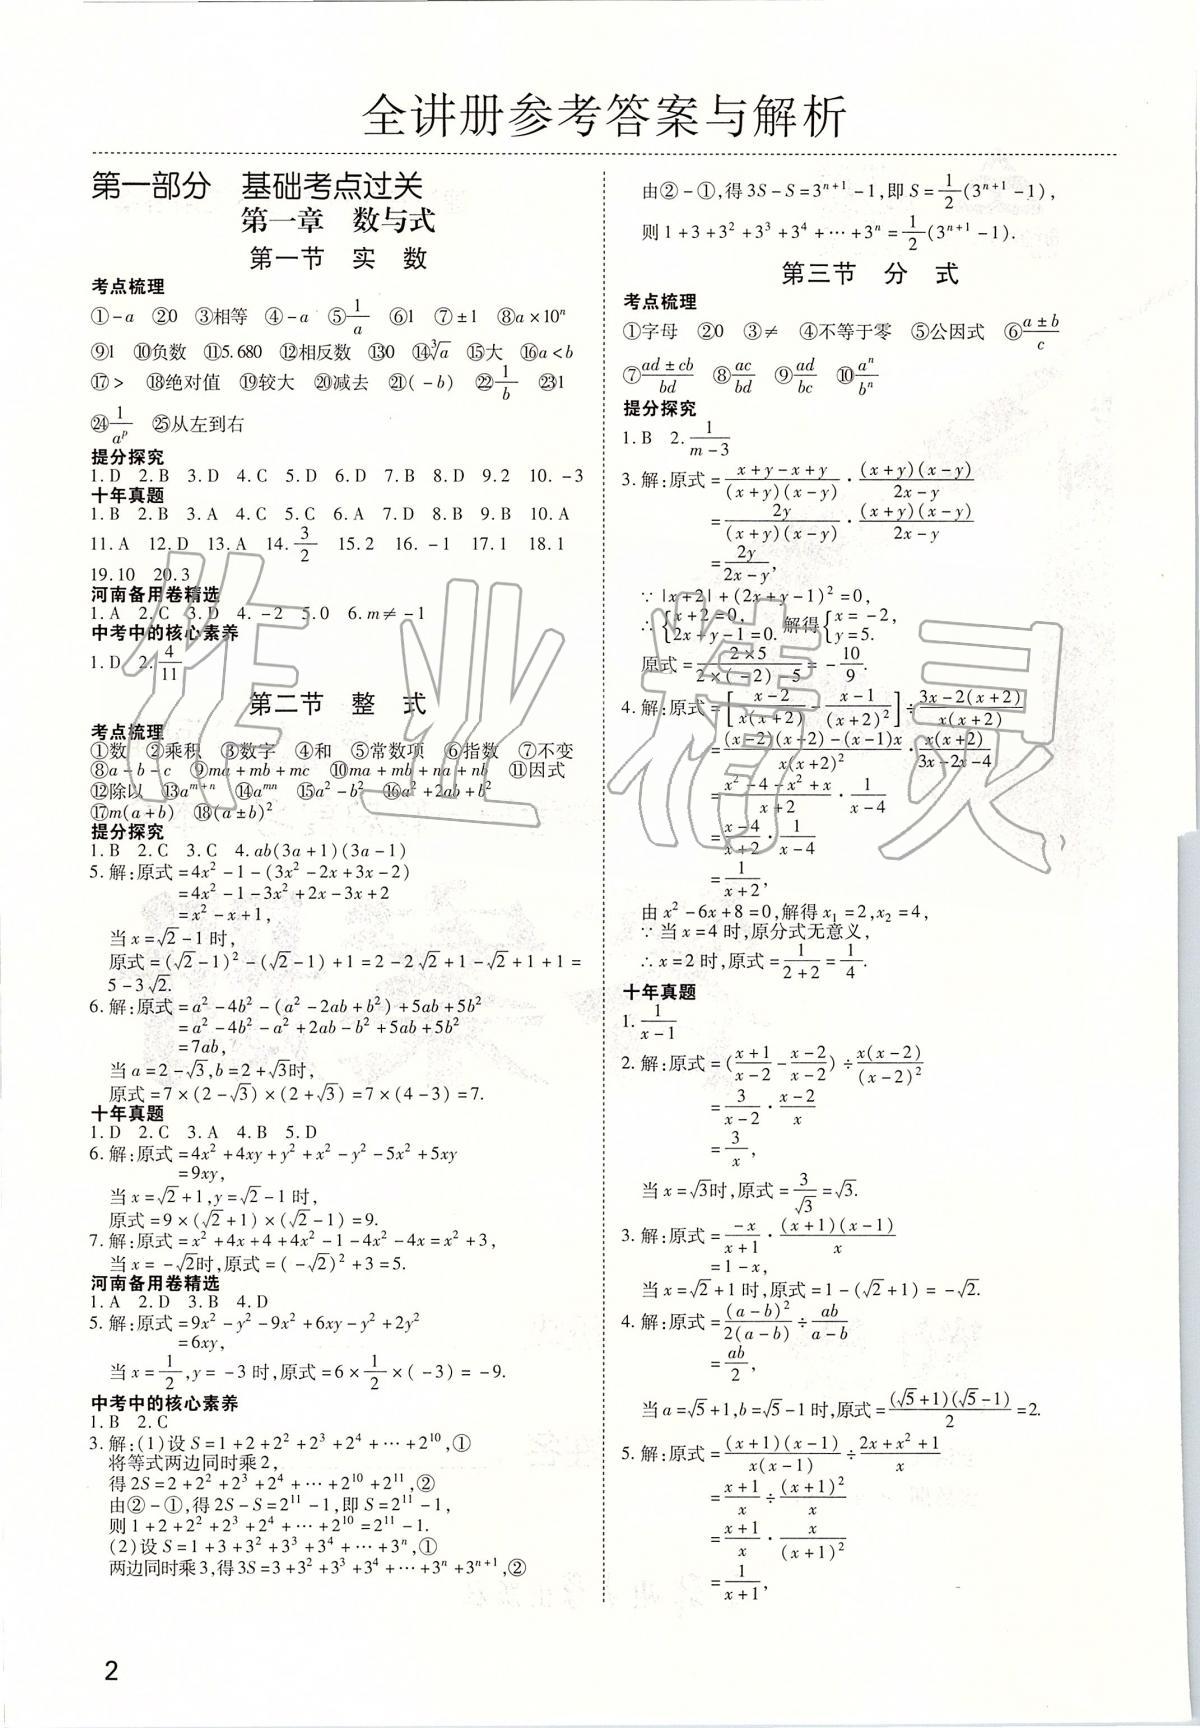 全讲册参考答案与解析
第一部分 基础考点过关
第一章 数与式
第一节 实 数
考点梳理
①-a ②0 ③相等 ④-a ⑤1/a ⑥1 ⑦±1 ⑧a×10ⁿ
⑨1 ⑩负数 ⑪5.680 ⑫相反数 ⑬0 ⑭∛a ⑮大 ⑯a<b
⑰> ⑱绝对值 ⑲较大 ⑳减去 ㉑(-b) ㉒1/b ㉓1
㉔1/aᵖ ㉕从左到右
提分探究
1.D 2.B 3.D 4.C 5.D 6.D 7.B 8.D 9.2 10.-3
十年真题
1.B 2.B 3.A 4.C 5.C 6.A 7.D 8.B 9.B 10.A
11.A 12.D 13.A 14.3/2 15.2 16.-1 17.1 18.1
19.10 20.3
河南备用卷精选
1.A 2.C 3.D 4.-2 5.0 6.m≠-1
中考中的核心素养
1.D 2.4/11
第二节 整 式
考点梳理
①数 ②乘积 ③数字 ④和 ⑤常数项 ⑥指数 ⑦不变
⑧a-b-c ⑨ma+mb+mc ⑩ma+mb+na+nb ⑪因式
⑫除以 ⑬aᵐ⁺ⁿ ⑭aᵐⁿ ⑮a²-b² ⑯a²+2ab+b²
⑰m(a+b) ⑱(a±b)²
提分探究
1.B 2.C 3.C 4.ab(3a+1)(3a-1)
5.解:原式=4x²-1-(3x²-2x+3x-2)
=4x²-1-3x²+2x-3x+2
=x²-x+1,
当x=√2-1时,
原式=(√2-1)²-(√2-1)+1=2-2√2+1-√2+1+1=
5-3√2.
6.解:原式=a²-4b²-(a²-2ab+b²)+5ab+5b²
=a²-4b²-a²+2ab-b²+5ab+5b²
=7ab,
当a=2-√3,b=2+√3时,
原式=7×(2-√3)×(2+√3)=7×(4-3)=7.
十年真题
1.D 2.C 3.A 4.B 5.D
6.解:原式=4x²+4xy+y²+x²-y²-5x²+5xy
=9xy,
当x=√2+1,y=√2-1时,
原式=9×(√2+1)×(√2-1)=9.
7.解:原式=x²+4x+4+4x²-1-4x²-4x=x²+3,
当x=-√2时,原式=(-√2)²+3=5.
河南备用卷精选
1.A 2.D 3.B 4.D
5.解:原式=9x²-y²-9x²+6xy-y²+2y²
=6xy,
当x=1/2,y=-3时,原式=6×1/2×(-3)=-9.
中考中的核心素养
1.B 2.C
3.解:(1)设S=1+2+2²+2³+2⁴+⋯+2¹⁰,①
将等式两边同时乘2,
得2S=2+2²+2³+2⁴+⋯+2¹⁰+2¹¹,②
由②-①,得2S-S=2¹¹-1,即S=2¹¹-1,
则1+2+2²+2³+2⁴+⋯+2¹⁰=2¹¹-1.
(2)设S=1+3+3²+3³+3⁴+⋯+3ⁿ,①
两边同时乘3,得3S=3+3²+3³+3⁴+⋯+3ⁿ+3ⁿ⁺¹,②
由②-①,得3S-S=3ⁿ⁺¹-1,即S=1/2(3ⁿ⁺¹-1),
则1+3+3²+3³+3⁴+⋯+3ⁿ=1/2(3ⁿ⁺¹-1).
第三节 分 式
考点梳理
①字母 ②0 ③≠ ④不等于零 ⑤公因式 ⑥(a±b)/c
⑦(ad±cb)/bd ⑧ac/bd ⑨ad/bc ⑩aⁿ/bⁿ
提分探究
1.B 2.1/(m-3)
3.解:原式=(x+y-x+y)/((x+y)(x-y))·((x+y)(x-y))/(2x-y)
=2y/((x+y)(x-y))·((x+y)(x-y))/(2x-y)
=2y/(2x-y),
∵|x+2|+(2x+y-1)²=0,
∴{x+2=0, 2x+y-1=0. 解得{x=-2, y=5.
原式=(2×5)/(2×(-2)-5)=-10/9.
4.解:原式=[(x-2)/(x(x+2))-(x-1)/(x+2)²]÷(3x-2(x+2))/(x(x+2))
=((x-2)(x+2)-(x-1)x)/(x(x+2)²)·(x(x+2))/(3x-2x-4)
=(x²-4-x²+x)/(x+2)·1/(x-4)
=(x-4)/(x+2)·1/(x-4)
=1/(x+2),
由x²-6x+8=0,解得x₁=2,x₂=4,
∵当x=4时,原分式无意义,
∴x=2时,原式=1/(2+2)=1/4.
十年真题
1.1/(x-1)
2.解:原式=((x+1)/(x-2)-(x-2)/(x-2))÷(x(x-2))/(x-2)²
=3/(x-2)·(x-2)/x
=3/x,
当x=√3时,原式=3/√3=√3.
3.解:原式=-x/(x+1)·((x+1)(x-1))/x
=1-x,
当x=√2+1时,原式=1-(√2+1)=-√2.
4.解:原式=(a-b)²/(2(a-b))÷ab/(a-b)
=ab/2,
当a=√5+1,b=√5-1时,原式=((√5+1)(√5-1))/2=2.
5.解:原式=((x+1)(x-1))/(x(x-1))÷(2x+x²+1)/x
=(x+1)/x÷(x+1)²/x
=(x+1)/x·x/(x+1)²
=1/(x+1),
2
作业精灵